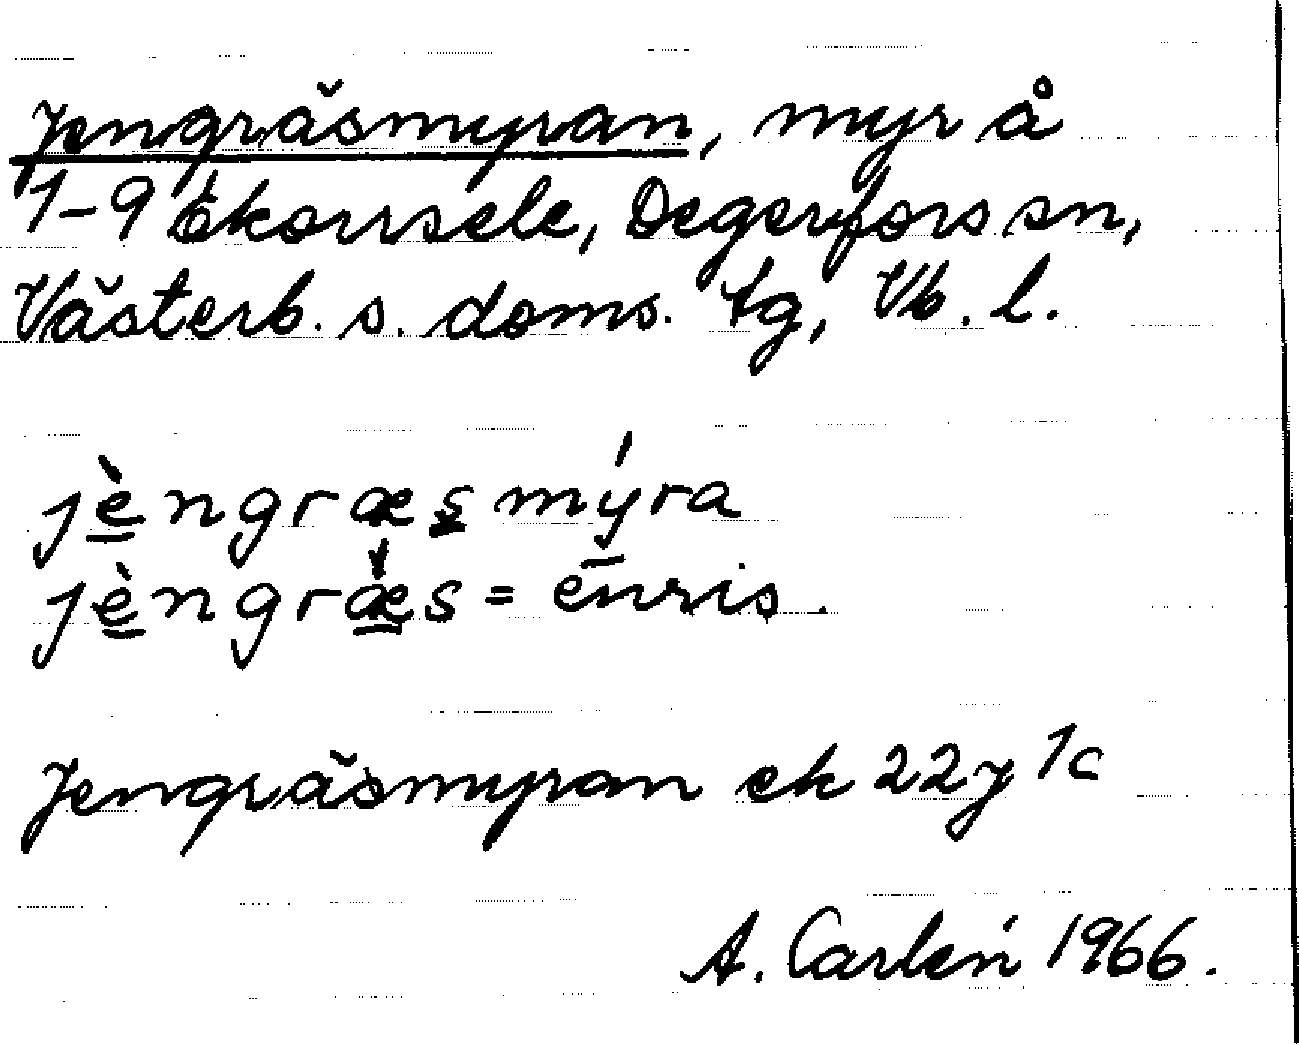 Jengräsmyran, myr å
1-9 Ekorrsele, Degerfors sn,
Västerb. s. doms. tg, Vb. l.
jèngræsmýra
jèngræs = enris.
Jengräsmyran ek 22y 1c
A. Carlén 1966.